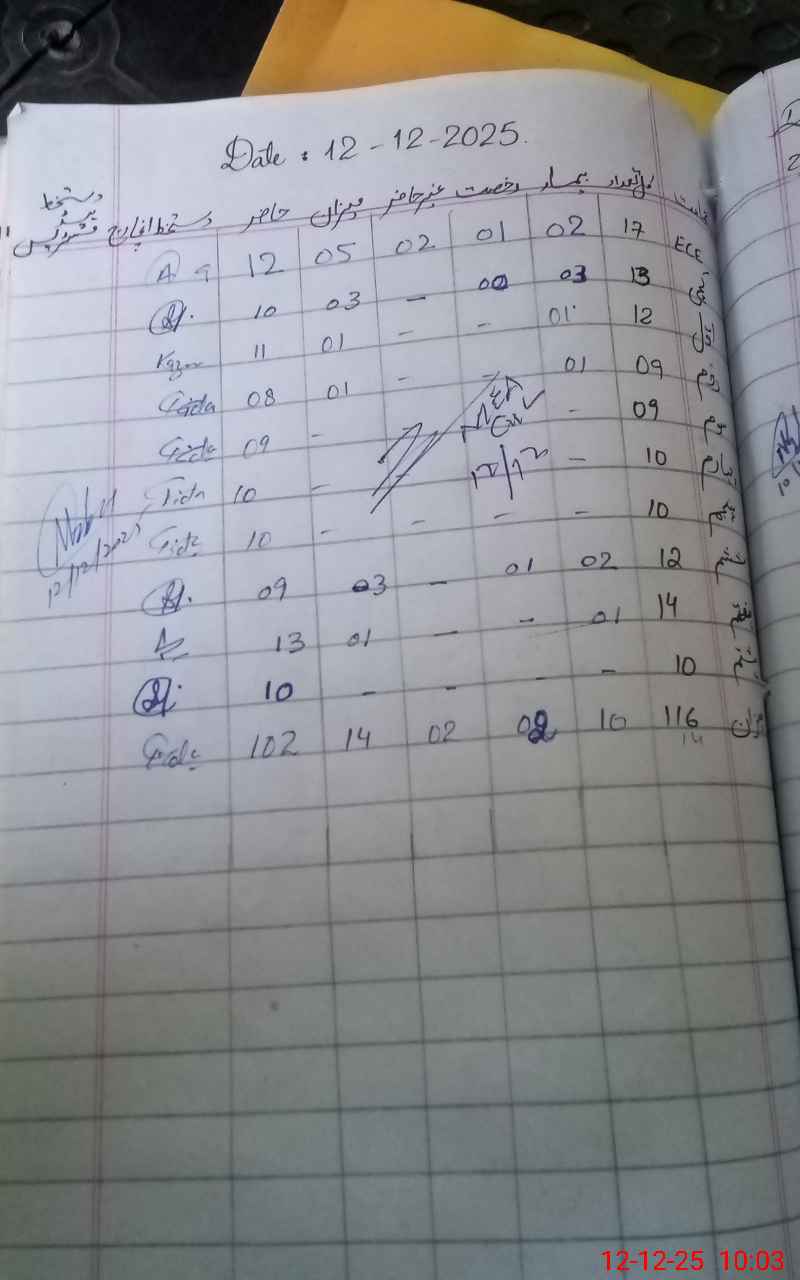 Date : 12-12-2025
جماعت کل تعداد بیمار رخصت غیر حاضر میزان حاضر دستخط انچارج دستخط
ECE 17 02 01 02 05 12 A
13 03 00 - 03 10
اول 12 01 - - 01 11
دوئم 09 01 - - 01 08 Fida
سوم 09 - - 09 Fida
چہارم 10 - - 10 Fida
پنجم 10 - - - - 10 Fida
12/12/2025
ششم 12 02 01 - 03 09
ہفتم 14 01 - - 01 13
ہشتم 10 - - - - 10
میزان 116 10 02 02 14 102 Fida
14
12-12-25 10:03